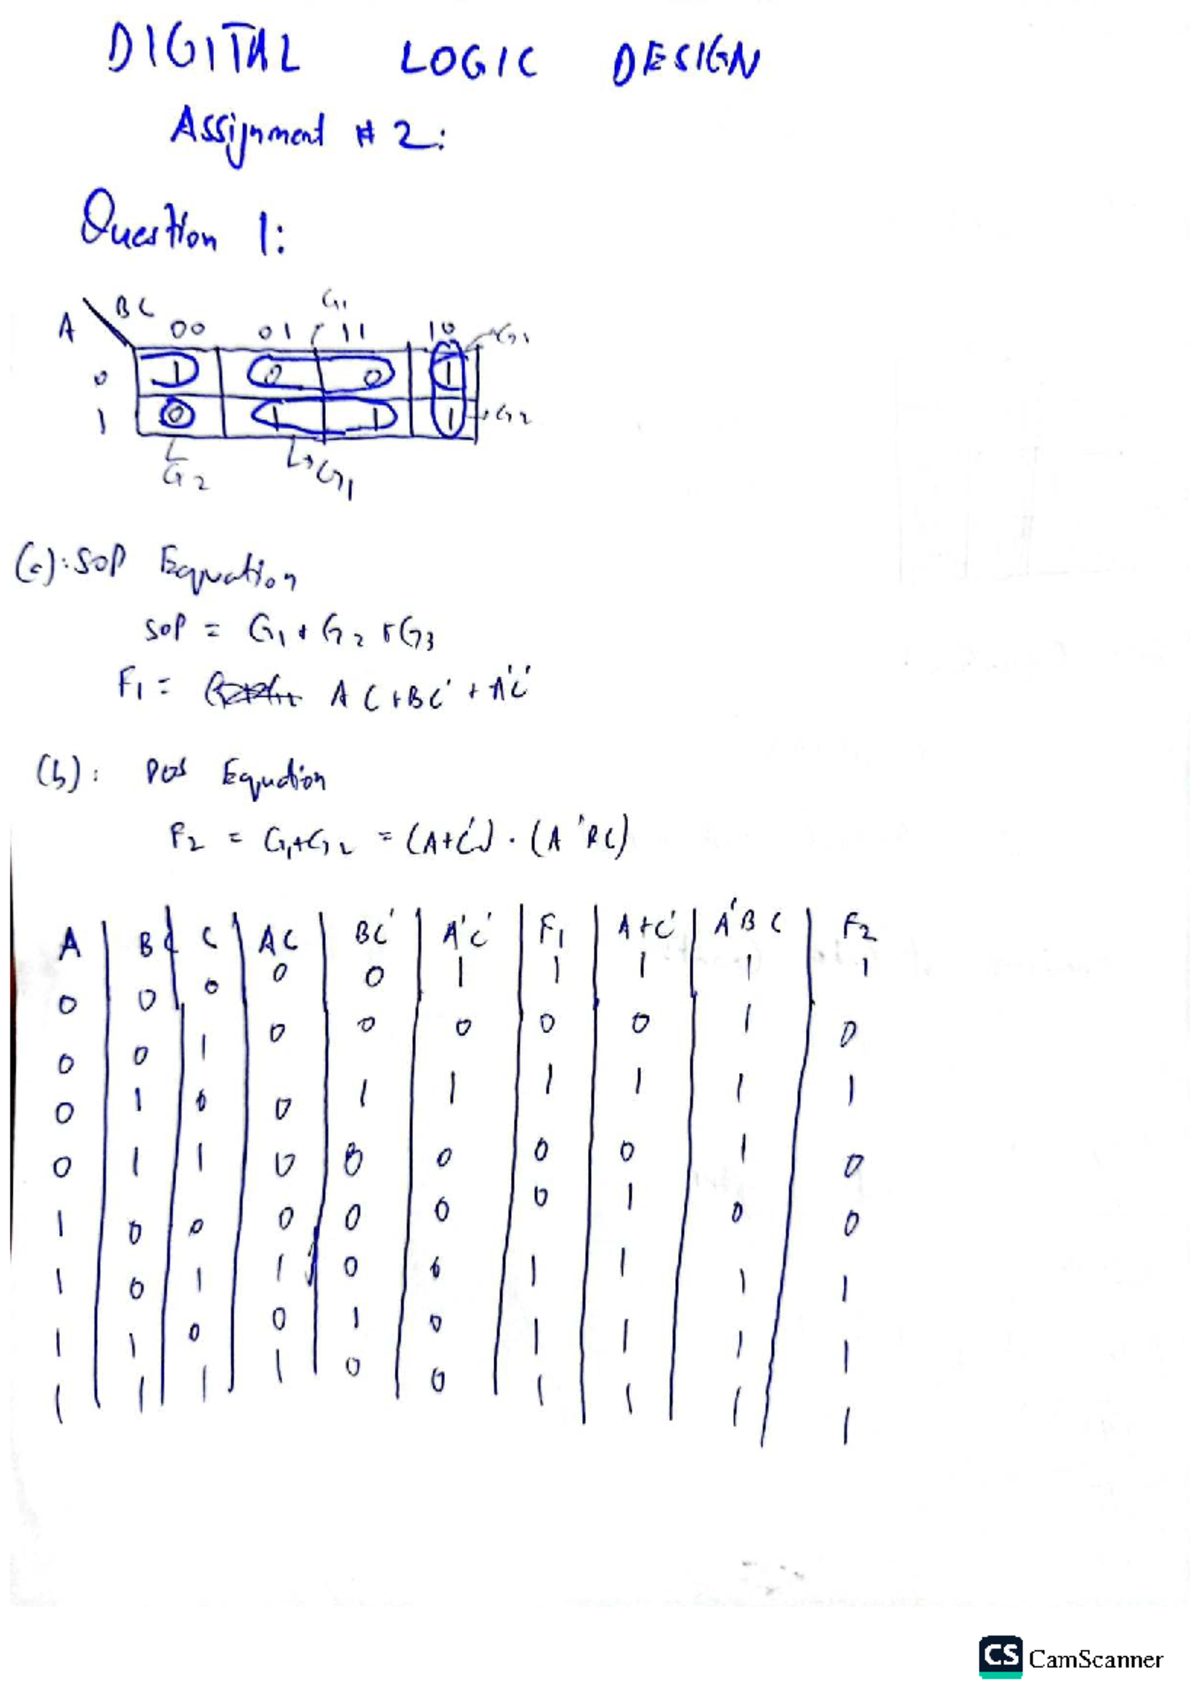 DIGITAL LOGIC DESIGN
Assignment # 2:
Question 1:
G1
A BC 00 01 11 10 G3
0 1 0 0 1
1 0 1 1 1 G2
G2 G1
(a): SOP Equation
SOP = G1 + G2 + G3
F1 = AC + BC' + A'C'
(b): POS Equation
F2 = G1+G2 = (A+C') . (A'BC)
A B C AC BC' A'C' F1 A+C' A'BC F2
0 0 0 0 0 1 1 1 1 1
0 0 1 0 0 0 0 0 1 0
0 1 0 0 1 1 1 1 1 1
0 1 1 0 0 0 0 0 1 0
1 0 0 0 0 0 0 1 0 0
1 0 1 1 0 0 1 1 1 1
1 1 0 0 1 0 1 1 1 1
1 1 1 1 0 0 1 1 1 1
CS CamScanner